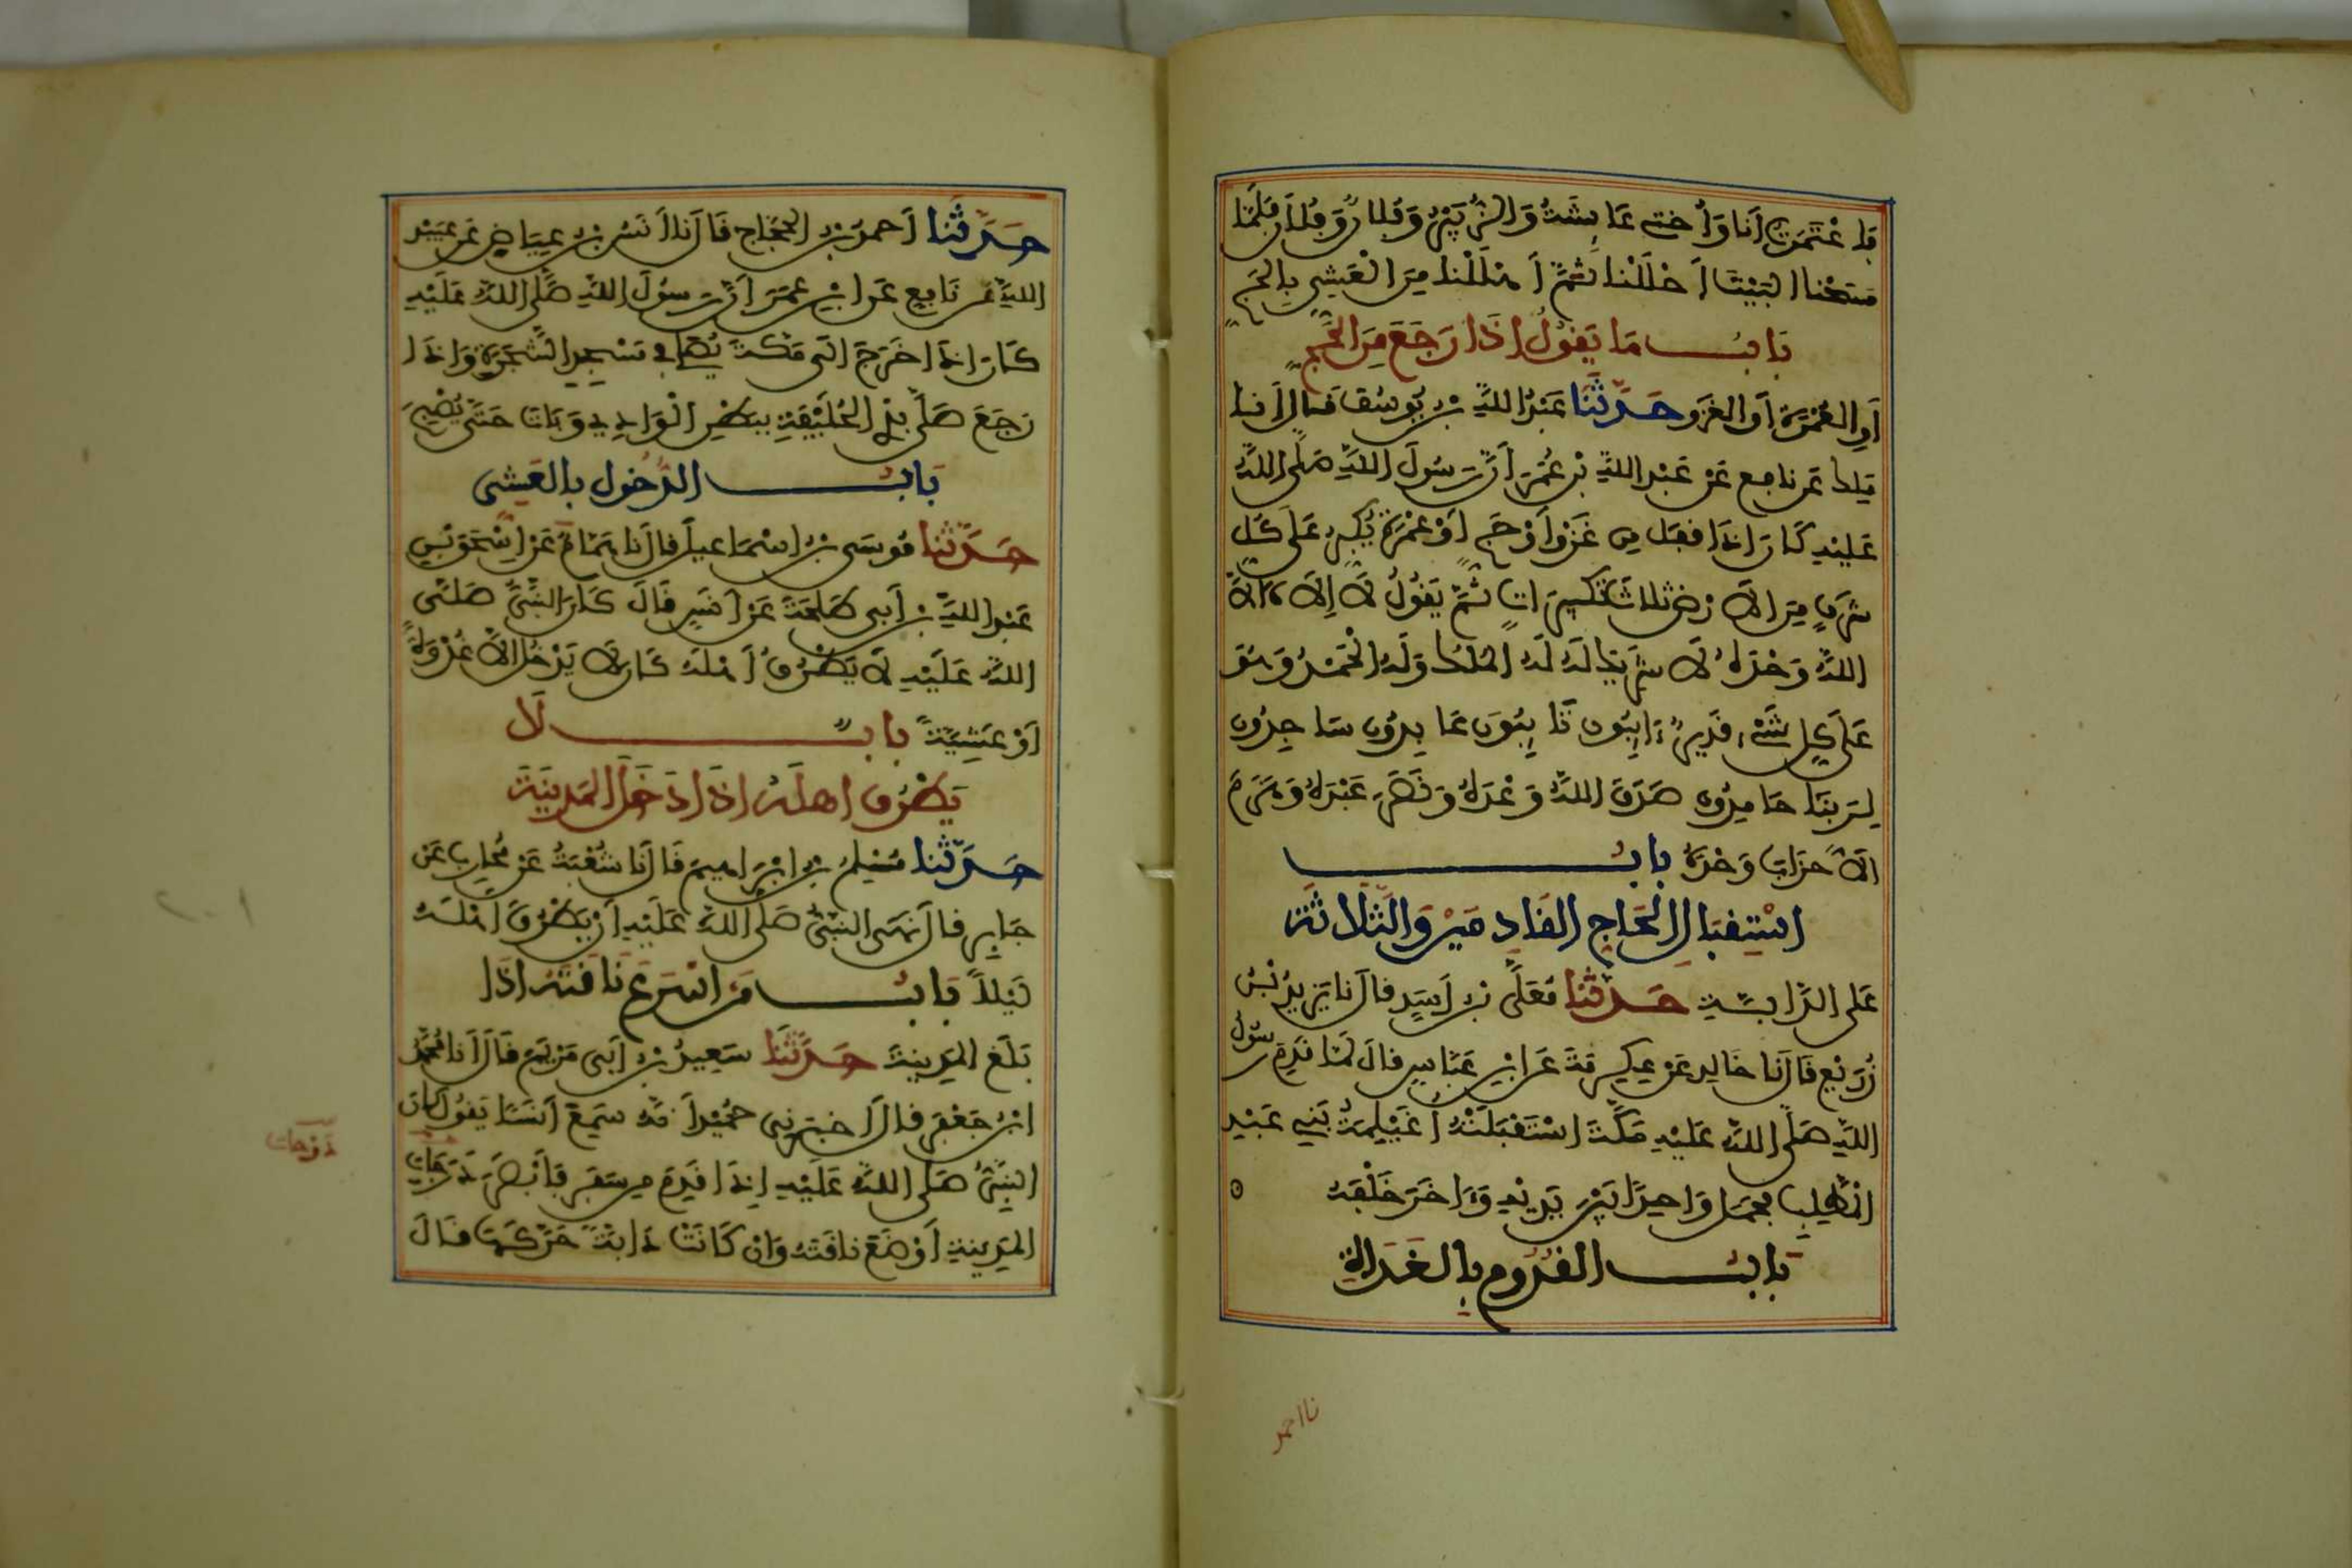 فَاعْتَمَرْتُ أَنَا وَأُخْتِي عَائِشَةُ وَالزُّبَيْرُ وَفُلَانٌ وَفُلَانٌ فَلَمَّا
مَسَحْنَا الْبَيْتَ أَحْلَلْنَا ثُمَّ أَهْلَلْنَا مِنَ الْعَشِيِّ بِالْحَجِّ
بَابُ مَا يَقُولُ إِذَا رَجَعَ مِنَ الْحَجِّ
أَوِ الْعُمْرَةِ أَوِ الْغَزْوِ حَدَّثَنَا عَبْدُ اللَّهِ بْنُ يُوسُفَ قَالَ أَنَا
مَلِكٌ عَنْ نَافِعٍ عَنْ عَبْدِ اللَّهِ بْنِ عُمَرَ أَنَّ رَسُولَ اللَّهِ صَلَّى اللَّهُ
عَلَيْهِ كَانَ إِذَا قَفَلَ مِنْ غَزْوٍ أَوْ حَجٍّ أَوْ عُمْرَةٍ يُكَبِّرُ عَلَى كُلِّ
شَرَفٍ مِنَ الْأَرْضِ ثَلَاثَ تَكْبِيرَاتٍ ثُمَّ يَقُولُ لَا إِلَهَ إِلَّا
اللَّهُ وَحْدَهُ لَا شَرِيكَ لَهُ لَهُ الْمُلْكُ وَلَهُ الْحَمْدُ وَهُوَ
عَلَى كُلِّ شَيْءٍ قَدِيرٌ ءَايِبُونَ تَائِبُونَ عَابِدُونَ سَاجِدُونَ
لِرَبِّنَا حَامِدُونَ صَدَقَ اللَّهُ وَعْدَهُ وَنَصَرَ عَبْدَهُ وَهَزَمَ
الْأَحْزَابَ وَحْدَهُ بَابُ
اسْتِقْبَالِ الْحَاجِّ الْقَادِمِينَ وَالثَّلَاثَةِ
عَلَى الدَّابَّةِ حَدَّثَنَا مُعَلَّى بْنُ أَسَدٍ قَالَ نَا يَزِيدُ بْنُ
زُرَيْعٍ قَالَ نَا خَالِدٌ عَنْ عِكْرِمَةَ عَنِ ابْنِ عَبَّاسٍ قَالَ لَمَّا قَدِمَ رَسُولُ
اللَّهِ صَلَّى اللَّهُ عَلَيْهِ مَكَّةَ اسْتَقْبَلَتْهُ أُغَيْلِمَةُ بَنِي عَبْدِ
الْمُطَّلِبِ فَحَمَلَ وَاحِدًا بَيْنَ يَدَيْهِ وَءَاخَرَ خَلْفَهُ
بَابُ الْقُدُومِ بِالْغَدَاةِ
نا احمد
حَدَّثَنَا أَحْمَدُ بْنُ الْحَجَّاجِ قَالَ نَا أَنَسُ بْنُ عِيَاضٍ عَنْ عُبَيْدِ
اللَّهِ عَنْ نَافِعٍ عَنِ ابْنِ عُمَرَ أَنَّ رَسُولَ اللَّهِ صَلَّى اللَّهُ عَلَيْهِ
كَانَ إِذَا خَرَجَ إِلَى مَكَّةَ يُصَلِّي فِي مَسْجِدِ الشَّجَرَةِ وَإِذَا
رَجَعَ صَلَّى بِذِي الْحُلَيْفَةِ بِبَطْنِ الْوَادِي وَبَاتَ حَتَّى يُصْبِحَ
بَابُ الدُّخُولِ بِالْعَشِيِّ
حَدَّثَنَا مُوسَى بْنُ إِسْمَاعِيلَ قَالَ نَا هَمَّامٌ عَنْ إِسْحَقَ بْنِ
عَبْدِ اللَّهِ بْنِ أَبِي طَلْحَةَ عَنْ أَنَسٍ قَالَ كَانَ النَّبِيُّ صَلَّى
اللَّهُ عَلَيْهِ لَا يَطْرُقُ أَهْلَهُ كَانَ لَا يَدْخُلُ إِلَّا غُدْوَةً
أَوْ عَشِيَّةً بَابٌ لَا
يَطْرُقُ أَهْلَهُ إِذَا دَخَلَ الْمَدِينَةَ
حَدَّثَنَا مُسْلِمُ بْنُ إِبْرَاهِيمَ قَالَ نَا شُعْبَةُ عَنْ مُحَارِبٍ عَنْ
جَابِرٍ قَالَ نَهَى النَّبِيُّ صَلَّى اللَّهُ عَلَيْهِ أَنْ يَطْرُقَ أَهْلَهُ
لَيْلًا بَابُ مَنْ أَسْرَعَ نَاقَتَهُ إِذَا
بَلَغَ الْمَدِينَةَ حَدَّثَنَا سَعِيدُ بْنُ أَبِي مَرْيَمَ قَالَ أَنَا مُحَمَّدُ
ابْنُ جَعْفَرٍ قَالَ أَخْبَرَنِي حُمَيْدٌ أَنَّهُ سَمِعَ أَنَسًا يَقُولُ كَانَ
النَّبِيُّ صَلَّى اللَّهُ عَلَيْهِ إِذَا قَدِمَ مِنْ سَفَرٍ فَأَبْصَرَ دَرَجَاتِ
الْمَدِينَةِ أَوْضَعَ نَاقَتَهُ وَإِنْ كَانَتْ دَابَّةً حَرَّكَهَا قَالَ
دَوْحَات